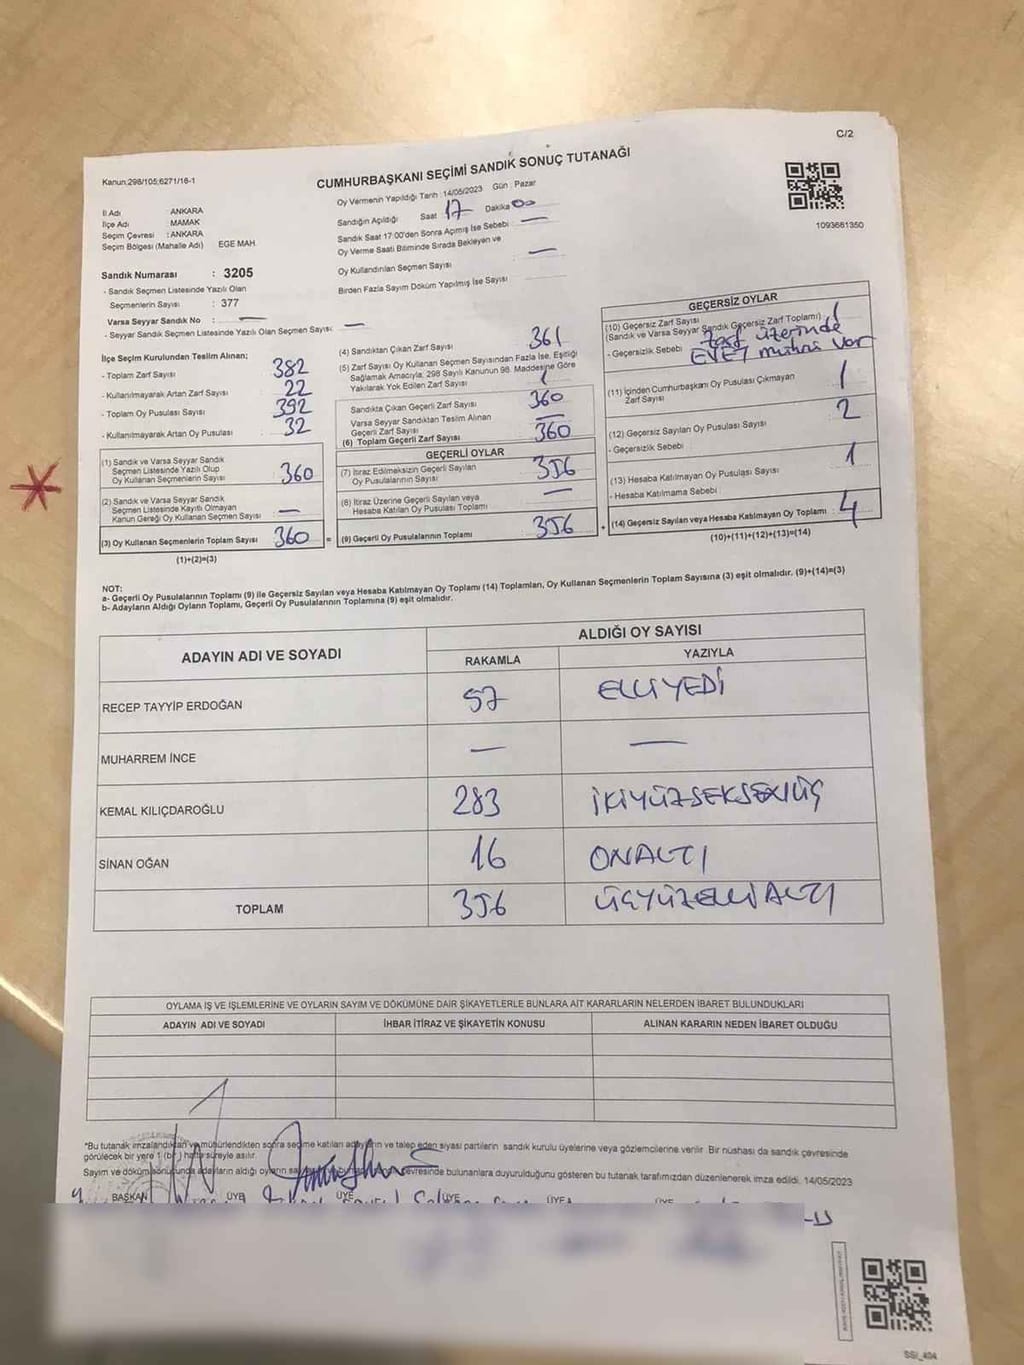 C/2
Kanun;298/105;6271/16-1
CUMHURBAŞKANI SEÇİMİ SANDIK SONUÇ TUTANAĞI
Oy Vermenin Yapıldığı Tarih : 14/05/2023 Gün : Pazar
1093661350
İl Adı ANKARA
İlçe Adı MAMAK
Seçim Çevresi : ANKARA
Seçim Bölgesi (Mahalle Adı) EGE MAH
Sandık Numarası : 3205
- Sandık Seçmen Listesinde Yazılı Olan
Seçmenlerin Sayısı : 377
Varsa Seyyar Sandık No : —
- Seyyar Sandık Seçmen Listesinde Yazılı Olan Seçmen Sayısı: —
Sandığın Açıldığı Saat 17 Dakika 00
Sandık Saat 17:00'den Sonra Açmış İse Sebebi : —
Oy Verme Saati Bitiminde Sırada Bekleyen ve
Oy Kullandırılan Seçmen Sayısı —
Birden Fazla Sayım Döküm Yapılmış İse Sayısı
İlçe Seçim Kurulundan Teslim Alınan;
- Toplam Zarf Sayısı 382
- Kullanılmayarak Artan Zarf Sayısı 22
- Toplam Oy Pusulası Sayısı 392
- Kullanılmayarak Artan Oy Pusulası 32
(1) Sandık ve Varsa Seyyar Sandık
Seçmen Listesinde Yazılı Olup
Oy Kullanan Seçmenlerin Sayısı 360
(2) Sandık ve Varsa Seyyar Sandık
Seçmen Listesinde Kayıtlı Olmayan
Kanun Gereği Oy Kullanan Seçmen Sayısı —
(3) Oy Kullanan Seçmenlerin Toplam Sayısı 360 =
(1)+(2)=(3)
(4) Sandıktan Çıkan Zarf Sayısı 361
(5) Zarf Sayısı Oy Kullanan Seçmen Sayısından Fazla İse, Eşitliği
Sağlamak Amacıyla, 298 Sayılı Kanunun 98. Maddesine Göre
Yakılarak Yok Edilen Zarf Sayısı 1
Sandıkta Çıkan Geçerli Zarf Sayısı 360
Varsa Seyyar Sandıktan Teslim Alınan
Geçerli Zarf Sayısı —
(6) Toplam Geçerli Zarf Sayısı 360
GEÇERLİ OYLAR
(7) İtiraz Edilmeksizin Geçerli Sayılan
Oy Pusulalarının Sayısı 356
(8) İtiraz Üzerine Geçerli Sayılan veya
Hesaba Katılan Oy Pusulası Toplamı —
(9) Geçerli Oy Pusulalarının Toplamı 356 +
GEÇERSİZ OYLAR
(10) Geçersiz Zarf Sayısı
(Sandık ve Varsa Seyyar Sandık Geçersiz Zarf Toplamı) 1
- Geçersizlik Sebebi : Zarf üzerinde
EVET mührü var
(11) İçinden Cumhurbaşkanı Oy Pusulası Çıkmayan
Zarf Sayısı 1
(12) Geçersiz Sayılan Oy Pusulası Sayısı 2
- Geçersizlik Sebebi :
(13) Hesaba Katılmayan Oy Pusulası Sayısı 1
- Hesaba Katılmama Sebebi :
(14) Geçersiz Sayılan veya Hesaba Katılmayan Oy Toplamı : 4
(10)+(11)+(12)+(13)=(14)
NOT:
a- Geçerli Oy Pusulalarının Toplamı (9) ile Geçersiz Sayılan veya Hesaba Katılmayan Oy Toplamı (14) Toplamları, Oy Kullanan Seçmenlerin Toplam Sayısına (3) eşit olmalıdır. (9)+(14)=(3)
b- Adayların Aldığı Oyların Toplamı, Geçerli Oy Pusulalarının Toplamına (9) eşit olmalıdır.
ADAYIN ADI VE SOYADI ALDIĞI OY SAYISI
RAKAMLA YAZIYLA
RECEP TAYYİP ERDOĞAN 57 ELLİYEDİ
MUHARREM İNCE — —
KEMAL KILIÇDAROĞLU 283 İKİYÜZSEKSENÜÇ
SİNAN OĞAN 16 ONALTI
TOPLAM 356 ÜÇYÜZELLİALTI
OYLAMA İŞ VE İŞLEMLERİNE VE OYLARIN SAYIM VE DÖKÜMÜNE DAİR ŞİKAYETLERLE BUNLARA AİT KARARLARIN NELERDEN İBARET BULUNDUKLARI
ADAYIN ADI VE SOYADI İHBAR İTİRAZ VE ŞİKAYETİN KONUSU ALINAN KARARIN NEDEN İBARET OLDUĞU
*Bu tutanak imzalandıktan ve mühürlendikten sonra seçime katılan adayların ve talep eden siyasi partilerin sandık kurulu üyelerine veya gözlemcilerine verilir. Bir nüshası da sandık çevresinde
görülecek bir yere 1 (bir) hafta süreyle asılır.
Sayım ve döküm sonucunda adayların aldığı oyların çevresinde bulunanlara duyurulduğunu gösteren bu tutanak tarafımızdan düzenlenerek imza edildi. 14/05/2023
BAŞKAN ÜYE ÜYE ÜYE ÜYE ÜYE
SSİ_404